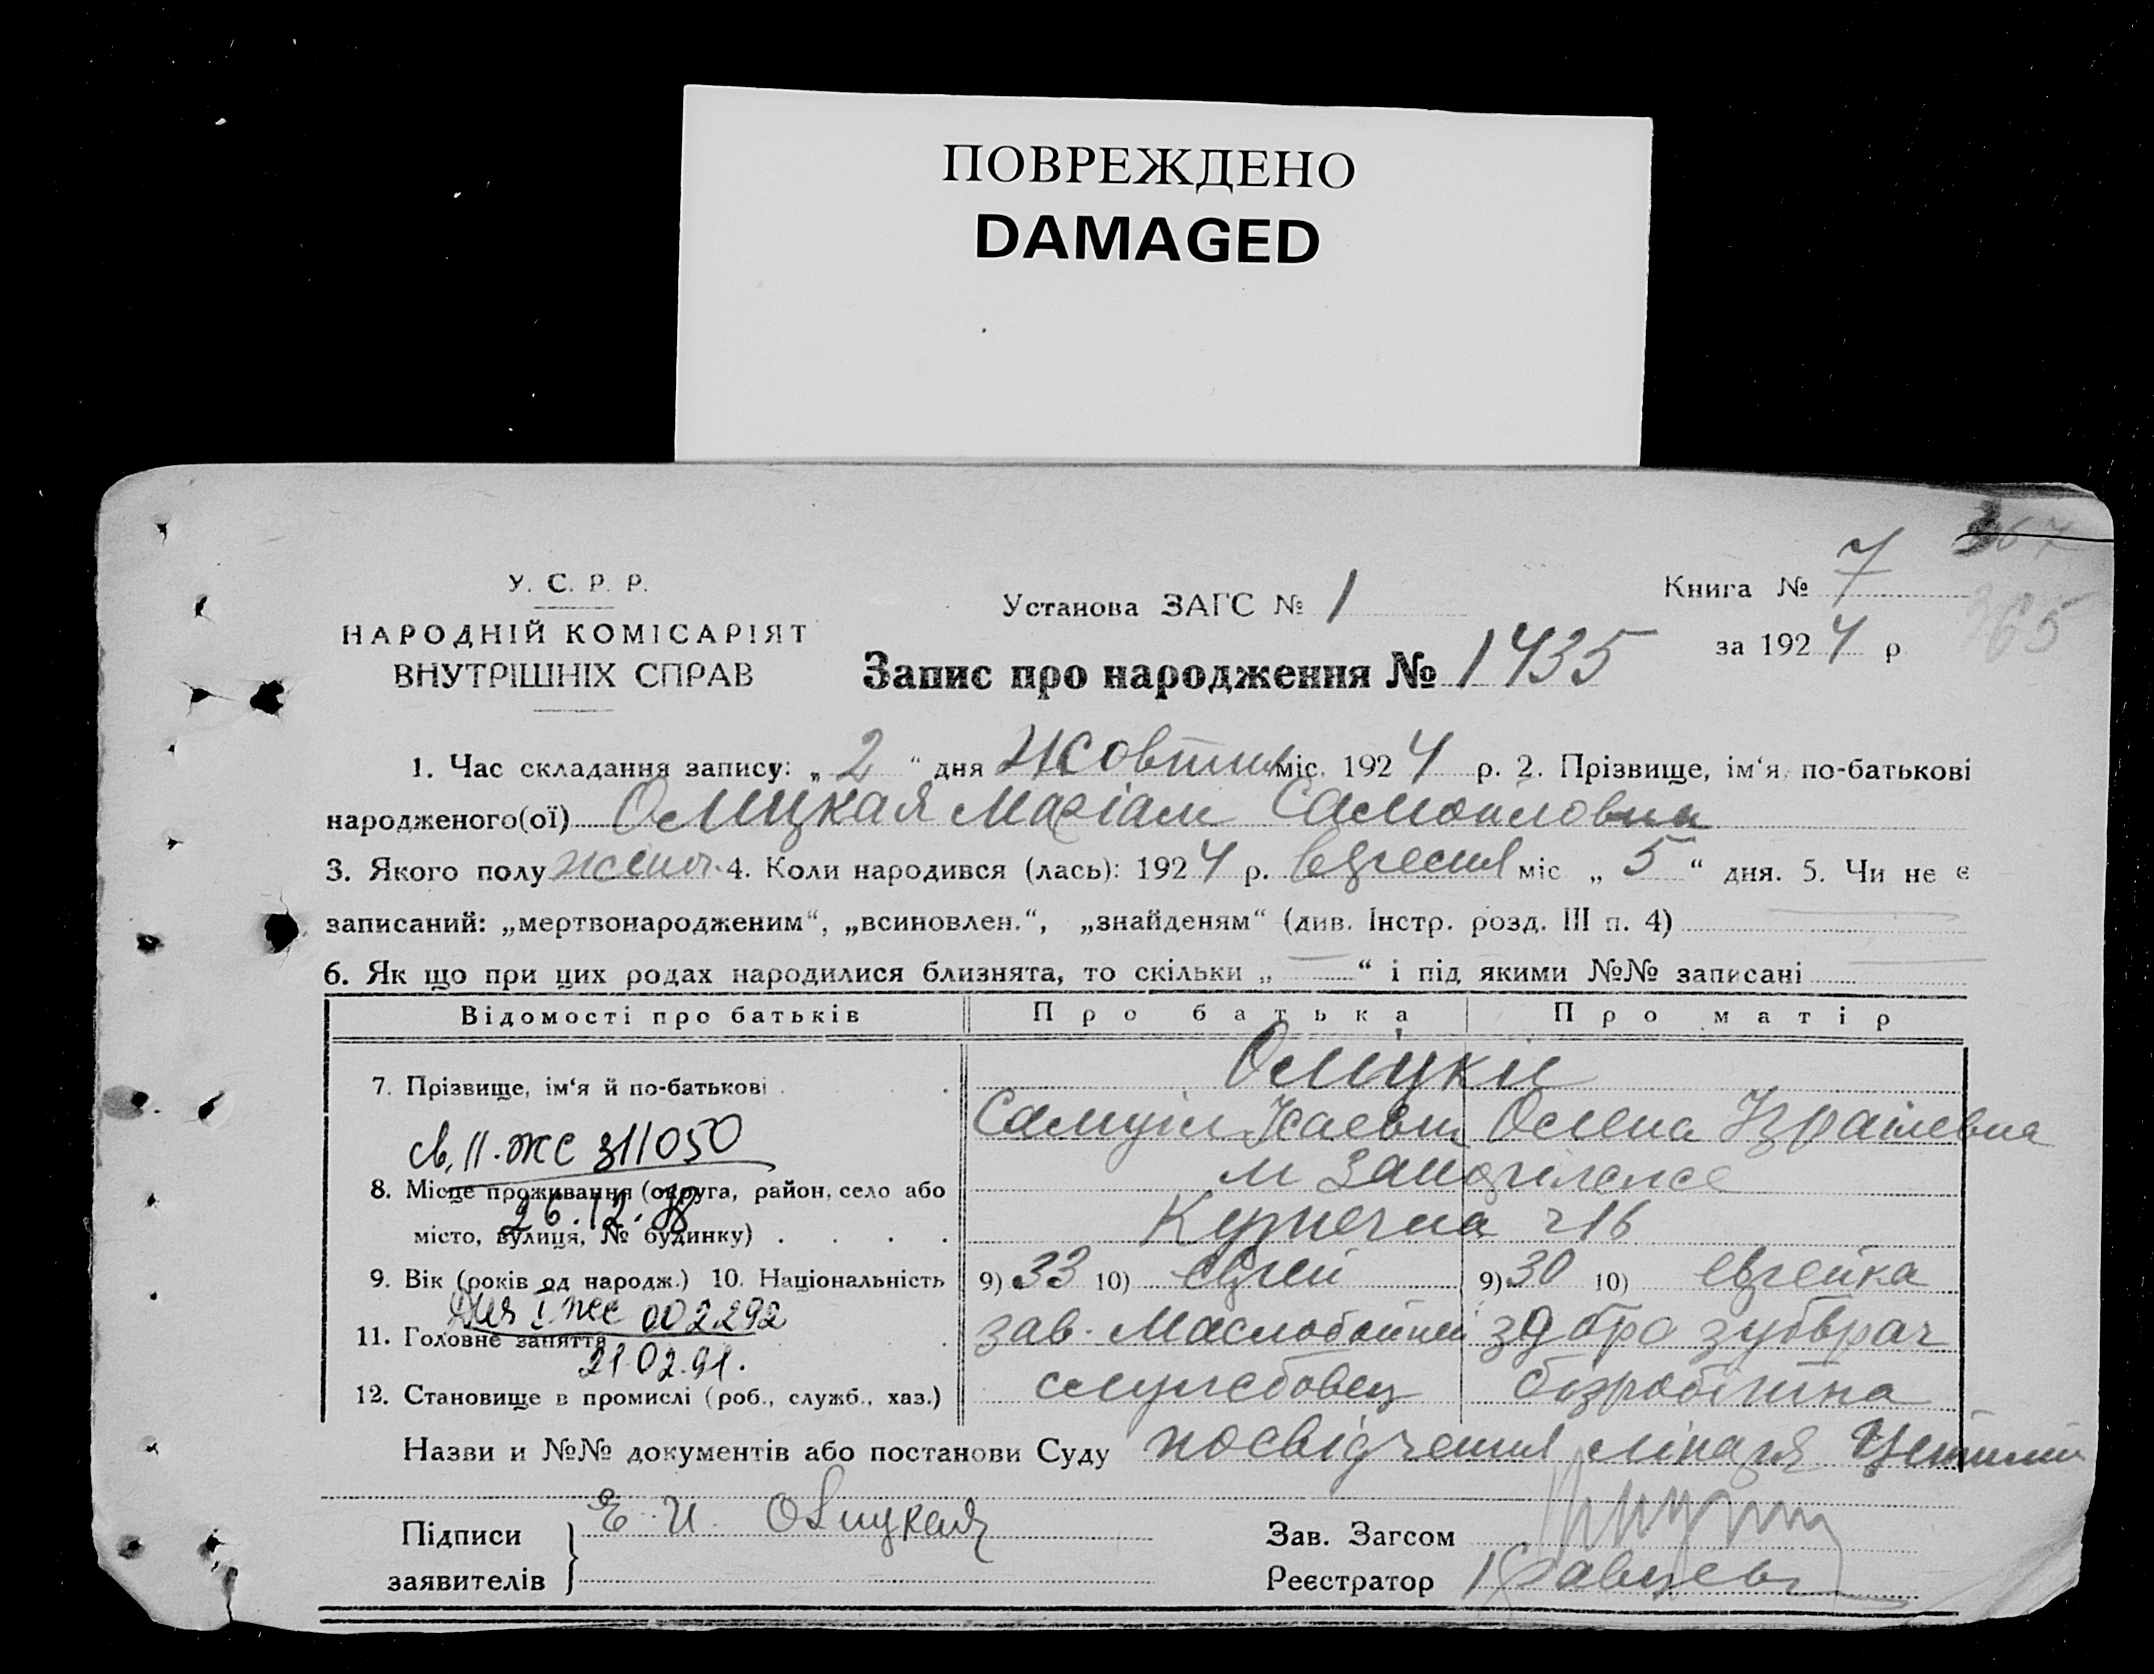 ПОВРЕЖДЕНО
DAMAGED
367
365
У. С. Р. Р.
НАРОДНІЙ КОМІСАРІЯТ
ВНУТРІШНІХ СПРАВ
Установа ЗАГС № 1
Книга № 7
за 1924 р
Запис про народження № 1435
1. Час складання запису: „ 2 “ дня Жовтня міс. 1924 р. 2. Прізвище, ім‘я, по-батькові
народженого(ої) Олицкая Маріам Самоиловна
3. Якого полу жіноч. 4. Коли народився (лась): 1924 р. вересня міс „ 5 “ дня. 5. Чи не є
записаний: „мертвонародженим“, „всиновлен.“, „знайденям“ (див. Інстр. розд. III п. 4)
6. Як що при цих родах народилися близнята, то скільки „ — “ і під якими №№ записані
Відомості про батьків Про батька Про матір
7. Прізвище, ім‘я й по-батькові Олицкі
Самуіл Олена Ізраілевна
св. II-ЖС 311050
8. Місце проживання (округа, район, село або м
26.12.
місто, вулиця, № будинку) ч 16
9. Вік (років од народж.) 10. Національність 9) 33 10) єврей 9) 30 10) еврейка
002292
11. Головне заняття зав. Маслобойней зубврач
21.02.91.
12. Становище в промислі (роб., служб., хаз.) службовец безробітна
Назви и №№ документів або постанови Суду посвідчення лікаря
Підписи
заявителів
Е. И. Олицкая
Зав. Загсом
Реєстратор